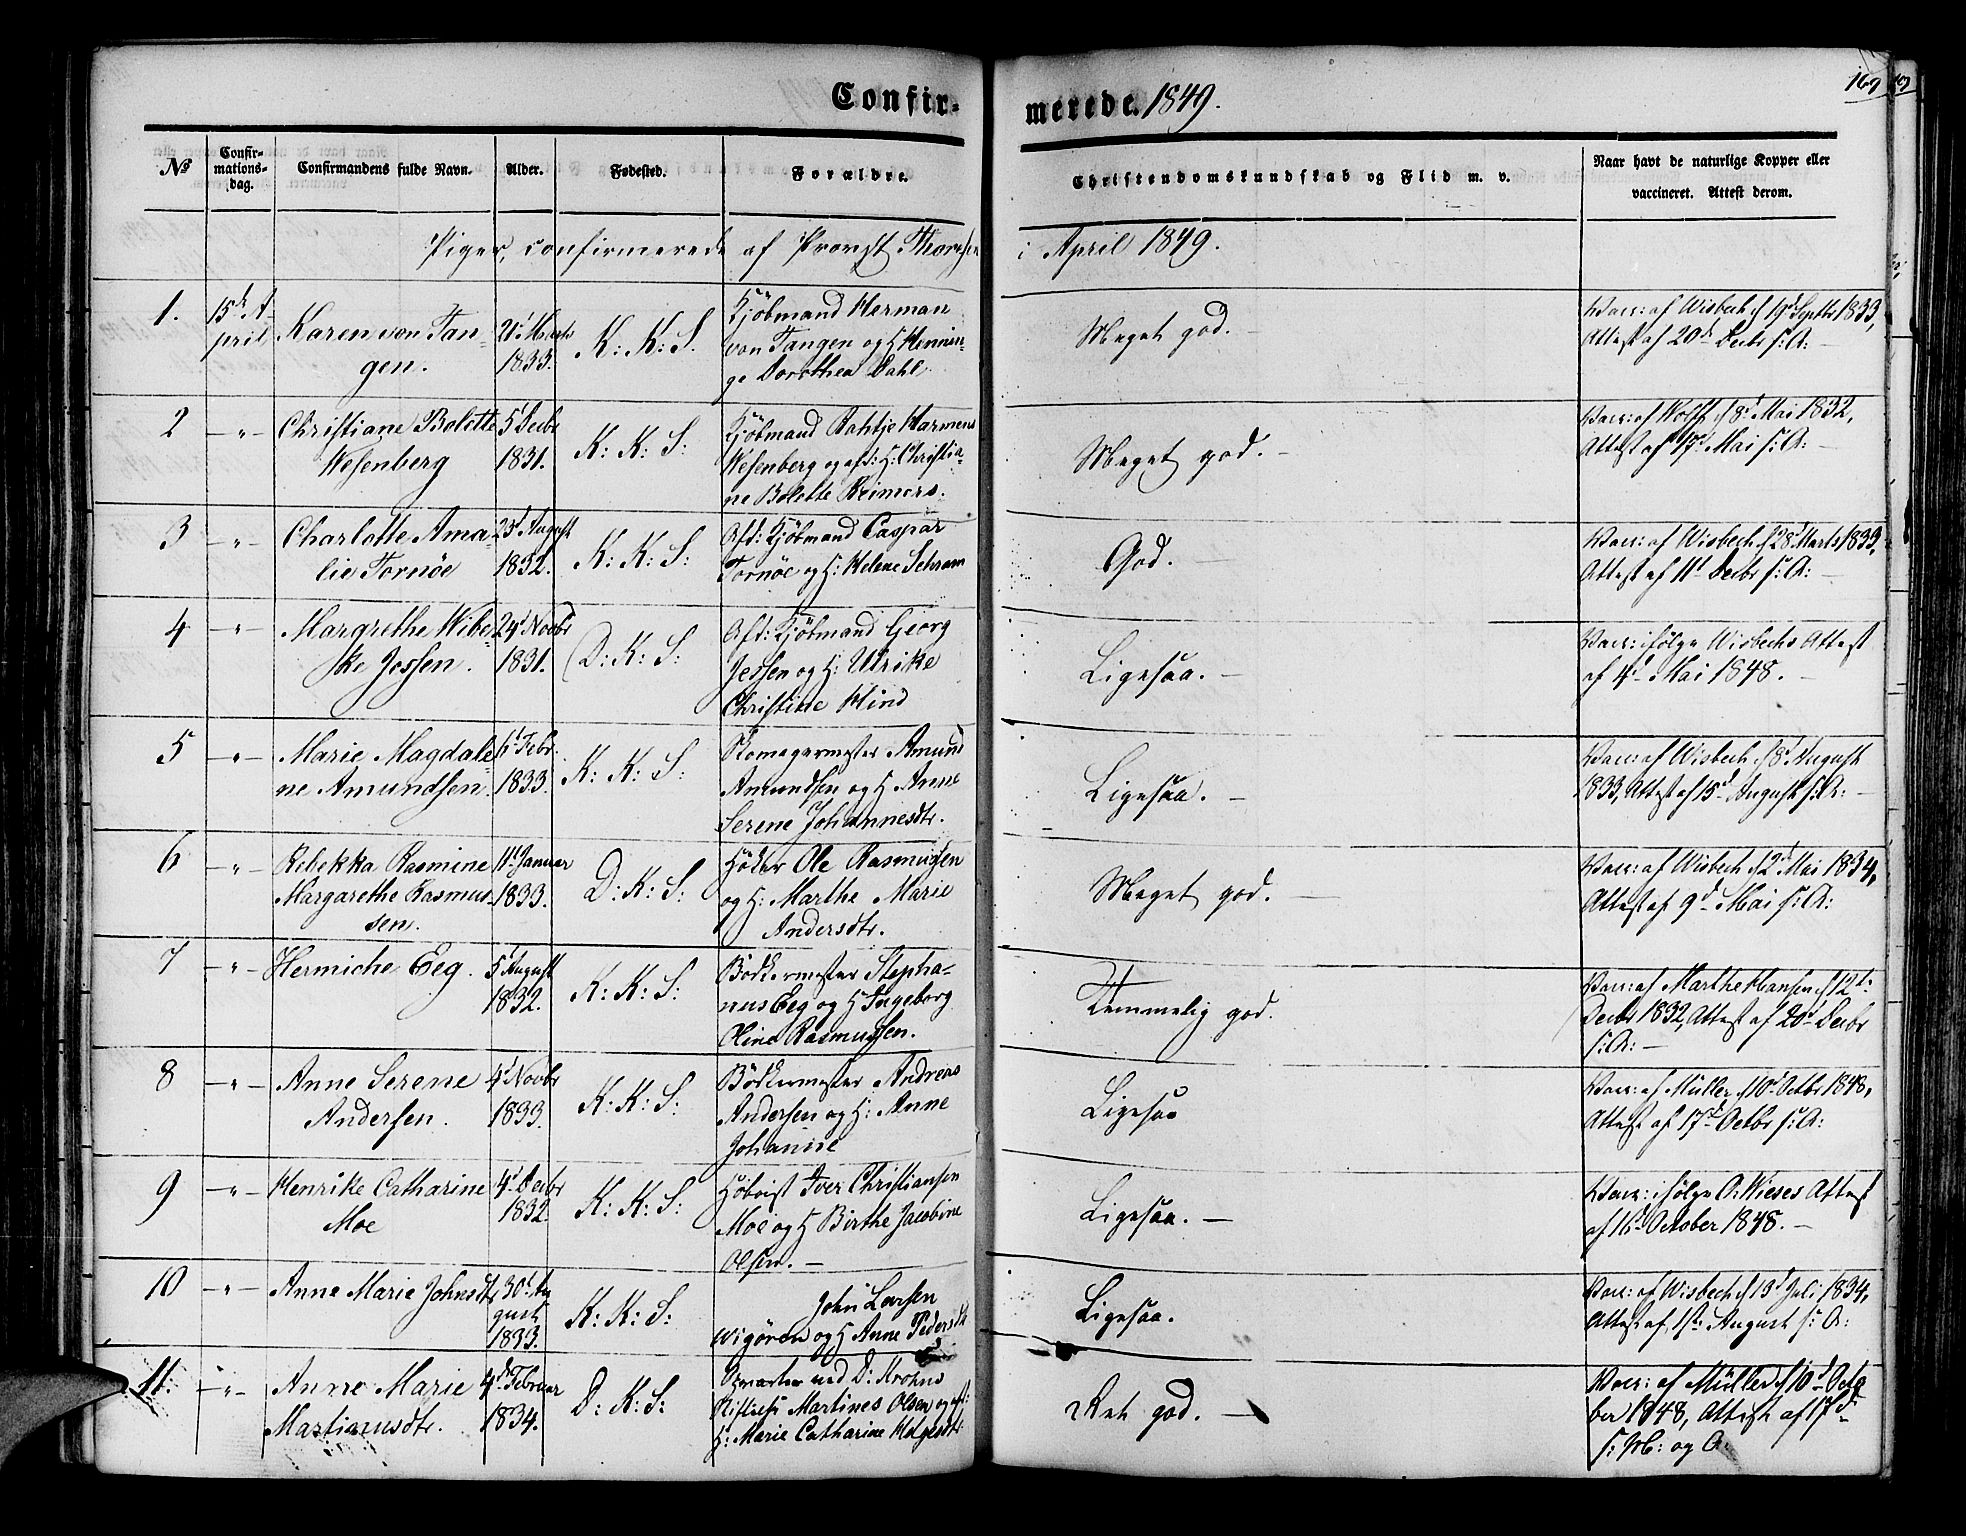 Confirmerede. 1849.
169
No
Confirmationsdag.
Confirmandens fulde Navn.
Alder.
Fødested.
Forældre.
Christendomskundskab og Flid m. v.
Naar havt de naturlige Kopper eller vaccineret. Attest derom.
Piger, confirmerede af Provst Thomsen i April 1849.
1. 15de A-
pril
Karen von Tan-
gen.
21 Marts
1833.
K: K: S.
Kjöbmand Herman
von Tangen og H Hennin-
ge Dorothea Dahl
Meget god.
Vacc: af Wisbech d 19d Septbr 1833,
Attest af 20de Decbr s: A: -
2 -"-
Christiane Bolette
Wesenberg
5t Decbr
1831.
K: K: S:
Kjöbmand Hartje Harmens
Wesenberg og afd: H: Christia-
ne Bolette Reimers.
Meget god. -
Vacc: af Wolff d 8d Mai 1832,
Attest af 17d Mai s: A: -
3 -"-
Charlotte Ama-
lie Tornöe
23d August
1832.
K: K: S:
Afd: Kjöbmand Caspar
Tornöe og H: Helene Schram
God. -
Vacc: af Wisbech d 28d Marts 1833,
Attest af 11t Decbr s: A: -
4 -"-
Margrethe Wibe-
ke Jessen.
24d Novbr
1831.
D: K: S:
Afd: Kjöbmand Georg
Jessen og H: Ulrike
Christine Hind
Ligesaa. -
Vacc: ifölge Wisbechs Attest
af 4d Mai 1848. -
5 -"-
Marie Magdale-
ne Amundsen.
6t Febr.
1833.
K: K: S:
Skomagermester Amund
Amundsen og H Anne
Serene Johannesdtr.
Ligesaa. -
Vacc: af Wisbech d 8d August
1833, Attest af 15d August s: A: -
6 -"-
Rebekka Rasmine
Margarethe Rasmus-
sen.
11t Januar
1833.
D: K: S:
Ole Rasmussen
og H: Marthe Marie
Andersdtr.
Meget god. -
Vacc: af Wisbech d 2d Mai 1834,
Attest af 9d Mai s: A:
7 -"-
Hermiche Eeg.
5t August
1832.
K: K: S:
Bödkermester Stepha-
nus Eeg og H Ingeborg
Oline Rasmussen.
Temmelig god.
Vacc: af Marthe Hansen d 12t:
Decbr 1832, Attest af 20d Decbr
s: A: -
8 -"-
Anne Serene
Andersen.
4t Novbr
1833.
K: K: S:
Bödkermester Andreas
Andersen og H: Anne
Johanne
Ligesaa
Vacc: af Müller d 10d Octbr 1848,
Attest af 17d Octbr s: A:
9 -"-
Henrike Catharine
Moe
4t Decbr
1832.
K: K: S:
Iver Christiansen
Moe og H Birthe Jacobine
Olsen. -
Ligesaa. -
Vacc: ifölge O: Wieses Attest
af 16d October 1848. -
10 -"-
Anne Marie Johnsdtr
30t Au
gust
1833.
K: K: S:
John Larsen
Wigören og H Anne Pedersdtr
Ligesaa.
Vacc: af Wisbech d 13d Juli 1834,
Attest af 1ste August s: A:
11. -"-
Anne Marie
Martinusdtr.
4de Februar
1834.
D: K: S:
ved D: Krohns
Martines Olsen og afd:
H: Marie Catharine Helgesdtr
Ret god. -
Vacc: af Müller d 10d Octo
ber 1848, Attest af 17d
s: M: og A: